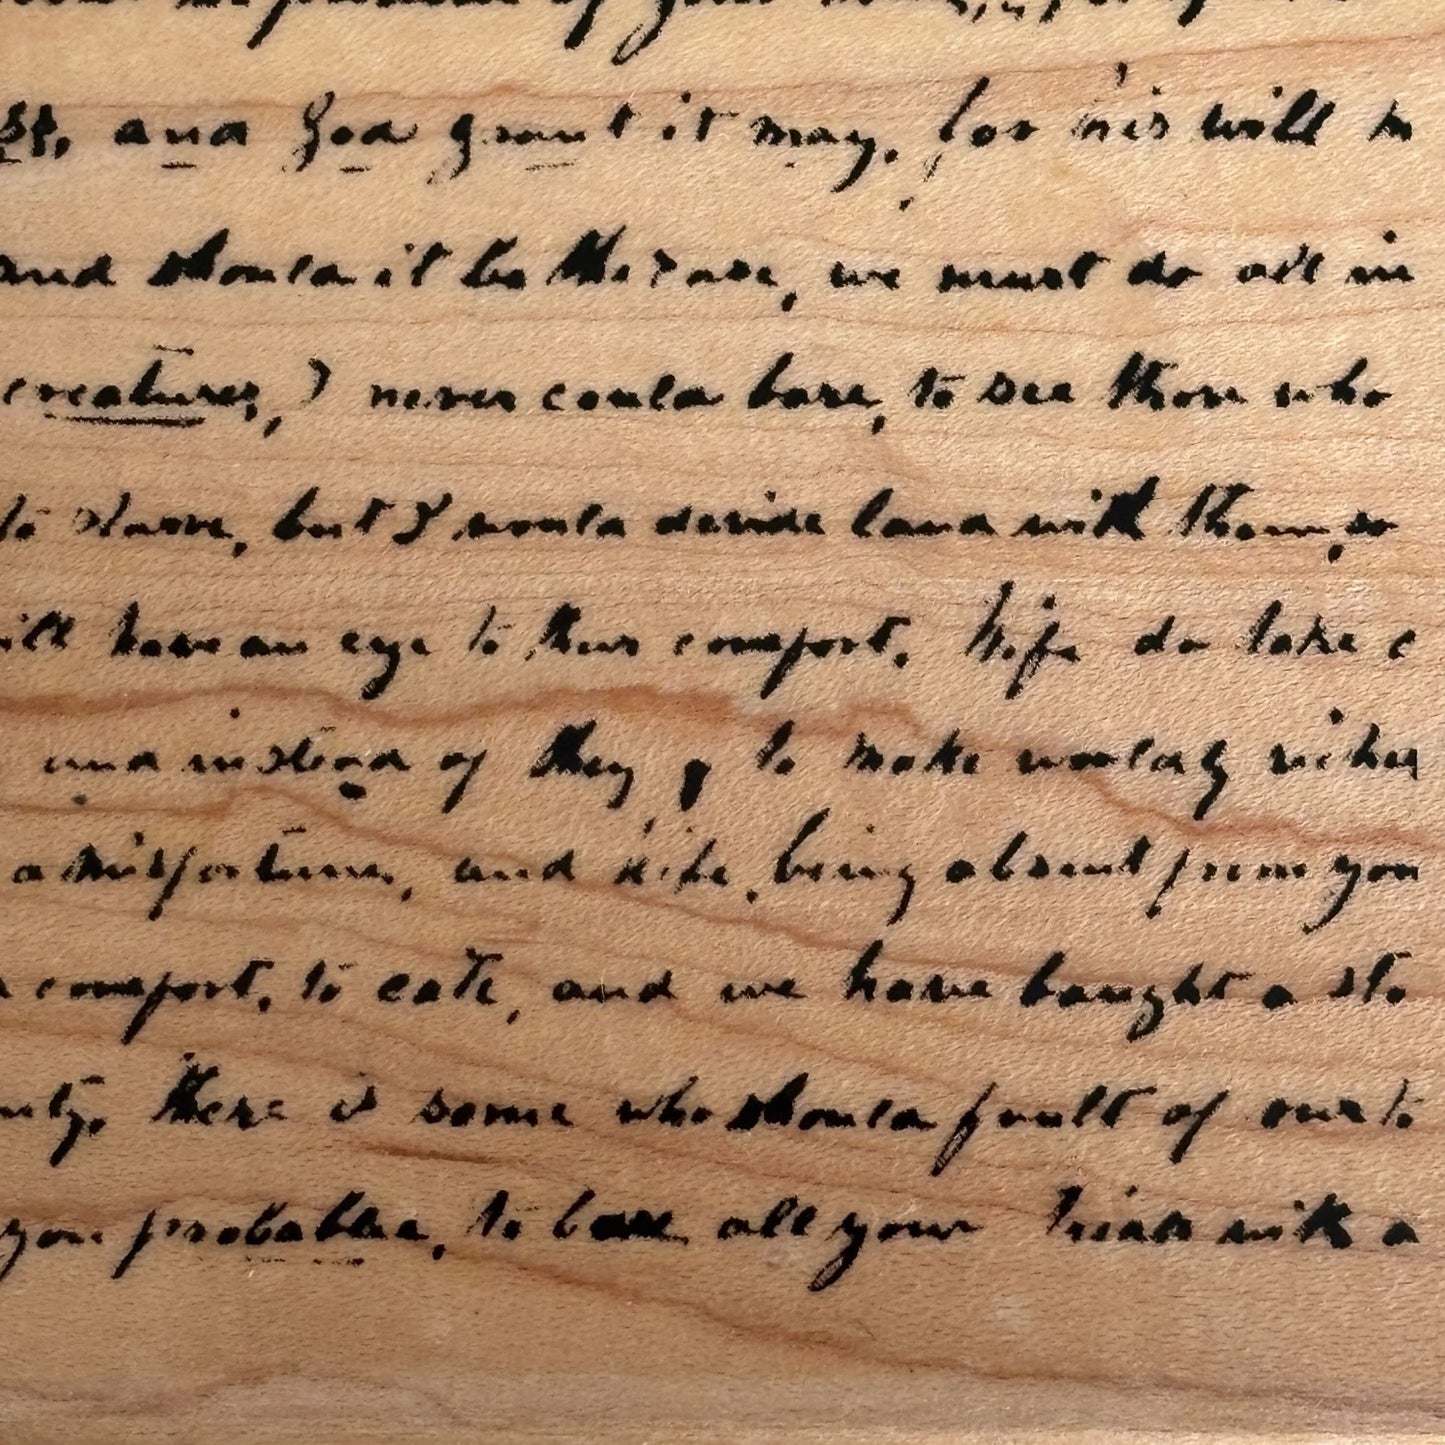 of your
and God grant it may, for his will
and should it be the case, we must do all in
creatures, I never could bare, to see those who
to starve, but I would devide land with them, so
have an eye to thur comfort. Wife do take c
and instead of they, to make worldly riches
a misfortune, and wife, being absent from you
comfort, to eate, and we have baught a sto
there is some who should fault of our to
you probablee, to bare all your trials with a